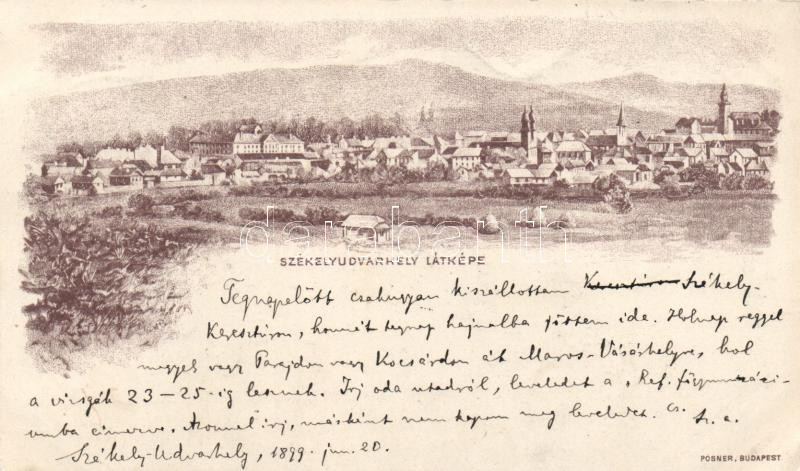 databanth
SZÉKELYUDVARHELY LÁTKÉPE
Tegnapelőtt csakugyan kiszállottam Keresztúron Székely-
Keresztúron, honnét tegnap hajnalba jöttem ide. Holnap reggel
megyek vagy Parajdon vagy Kocsárdon át Maros-Vásárhelyre, hol
a vizsgák 23–25-ig lesznek. Irj oda utadról, leveledet a „Ref. főgymnázi-
umba címezve. Azonnal irj, másként nem kapom meg leveledet. Cs.
Székely-Udvarhely, 1899. jun. 20.
POSNER, BUDAPEST